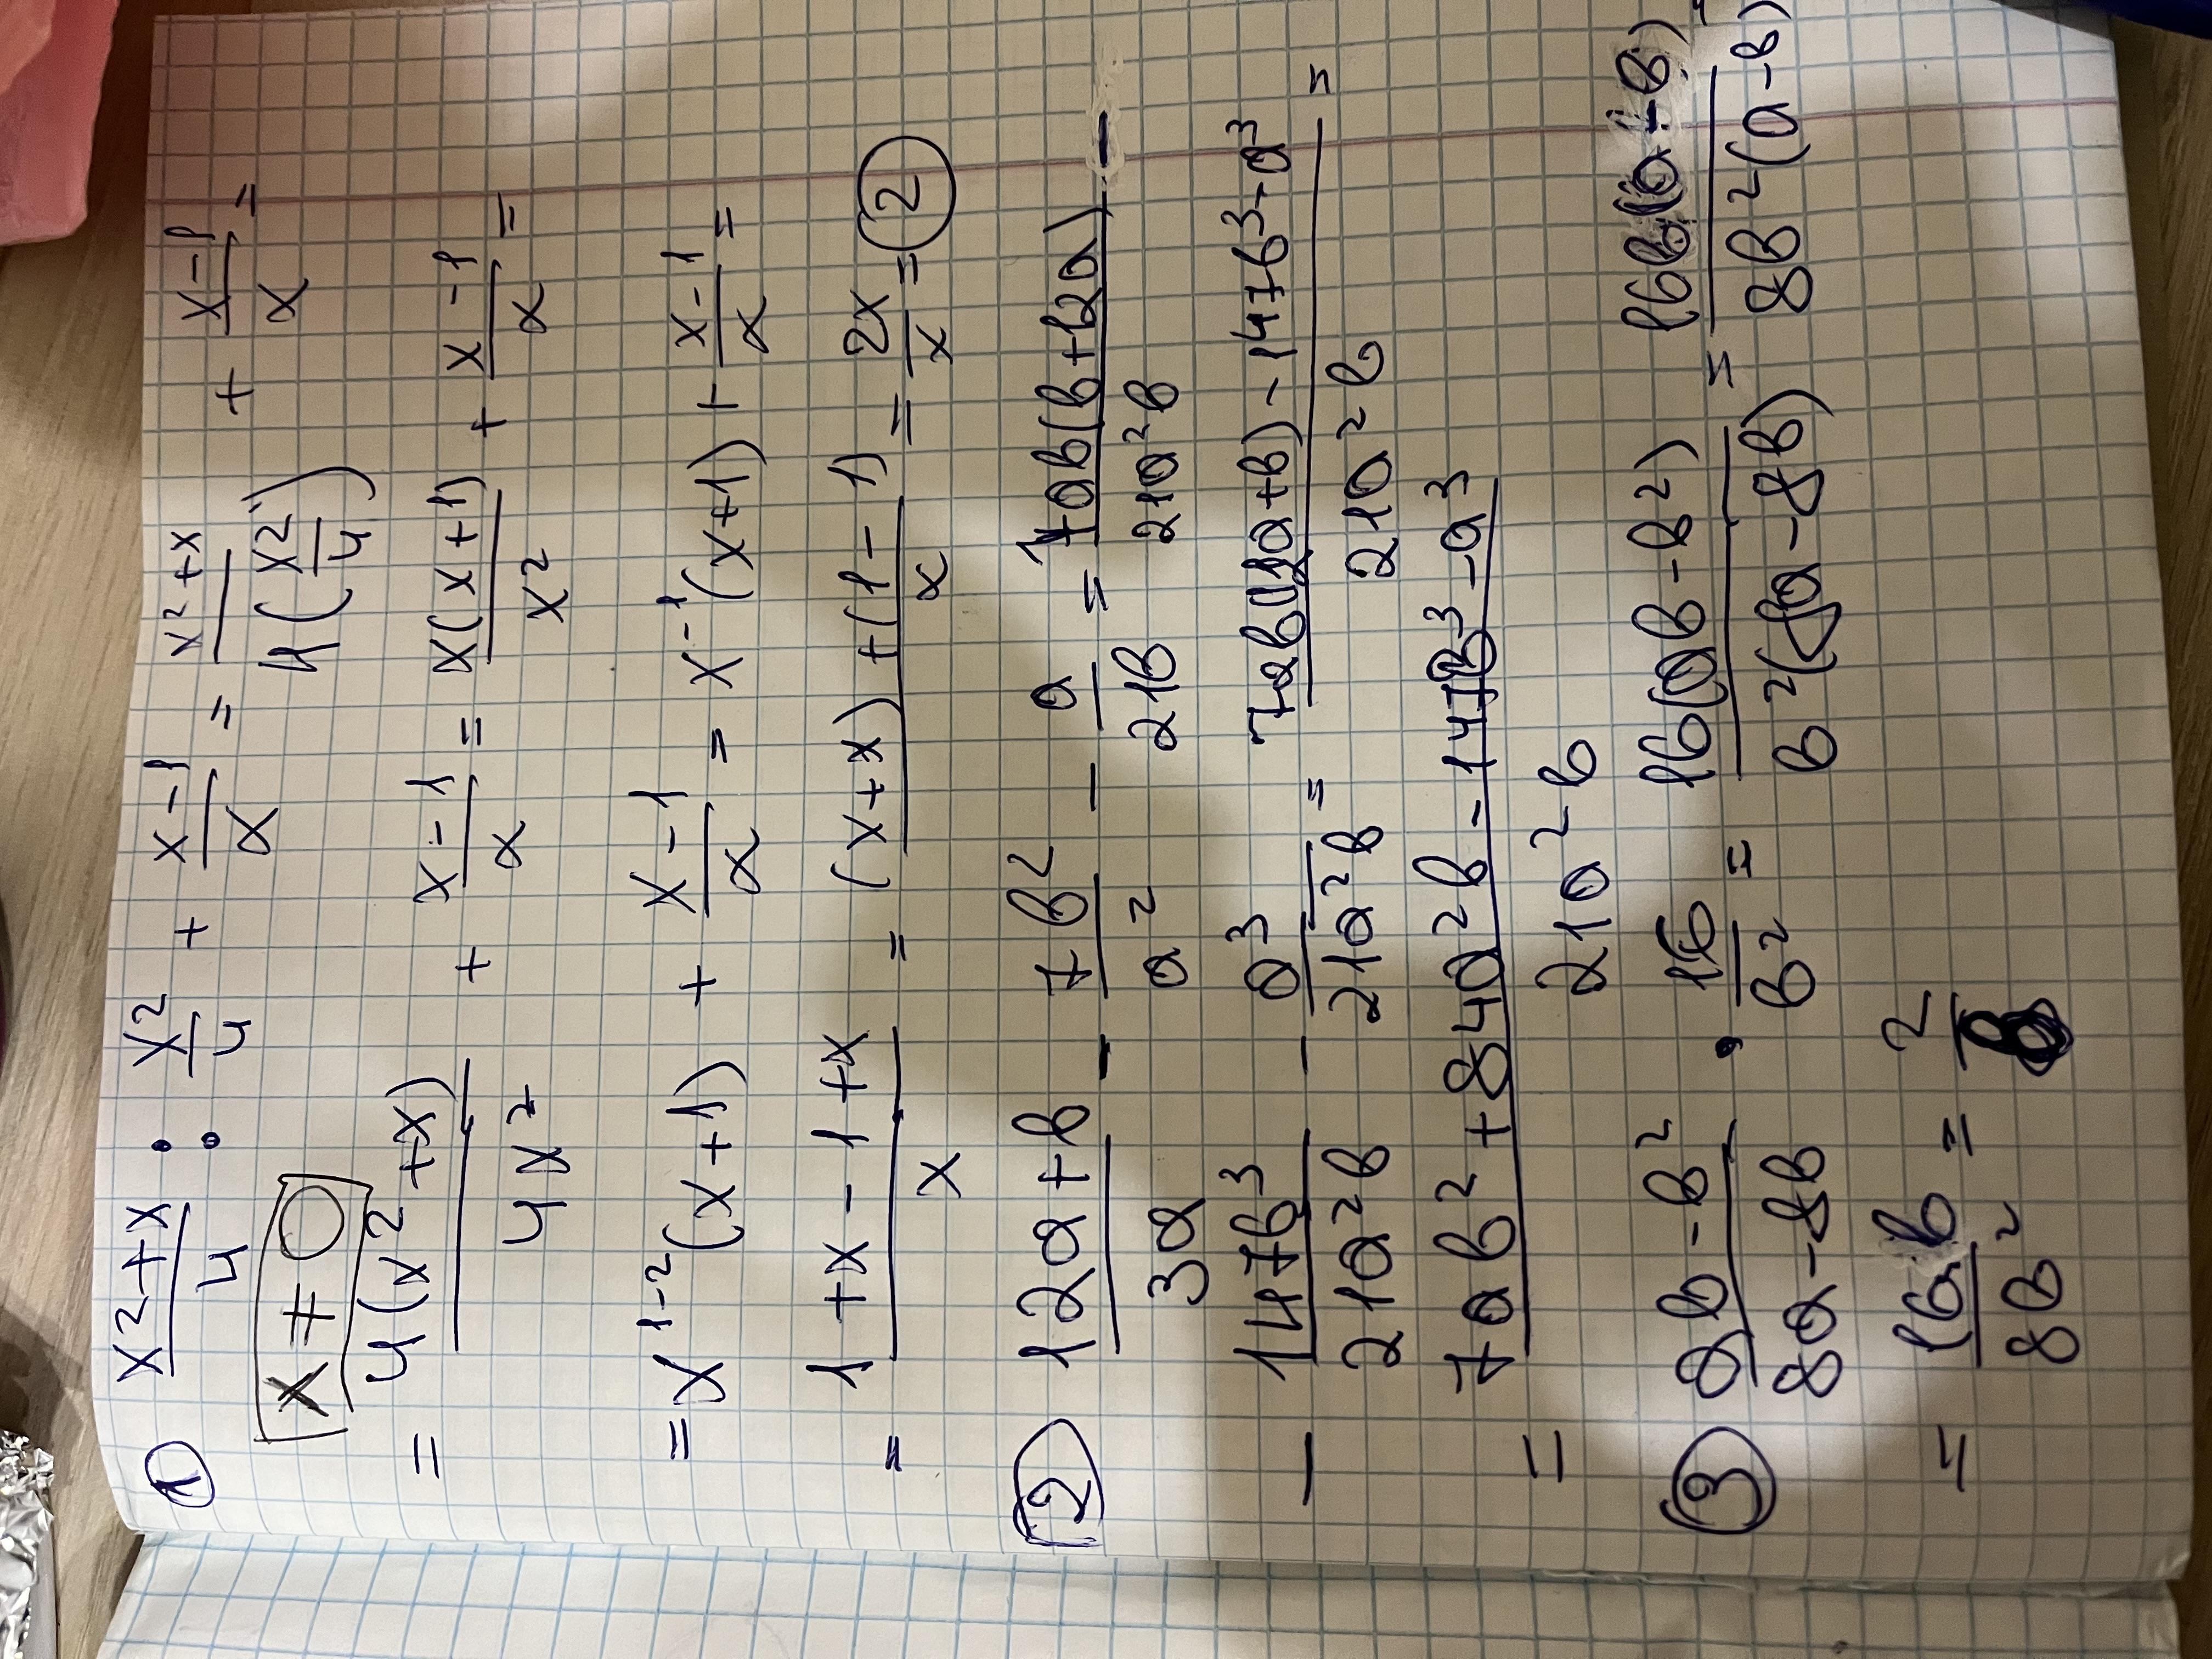 ① (x²+x)/4 : x²/4 + (x-1)/x = (x²+x)/(4(x²/4)) + (x-1)/x =
x ≠ 0
= 4(x²+x)/(4x²) + (x-1)/x = x(x+1)/x² + (x-1)/x =
= x¹⁻²(x+1) + (x-1)/x = x⁻¹(x+1) + (x-1)/x =
= (1+x-1+x)/x = ((x+x)+(1-1))/x = 2x/x = 2
② (12a+b)/(3a) - 7b²/a² - a/(21b) = 7ab(b+12a)/(21a²b) -
- 147b³/(21a²b) - a³/(21a²b) = (7ab(12a+b)-147b³-a³)/(21a²b) =
= (7ab²+84a²b-147b³-a³)/(21a²b)
③ (ab-b²)/(8a-8b) · 16/b² = 16(ab-b²)/(b²(8a-8b)) = 16b(a-b)/(8b²(a-b)) =
= 16b/(8b²) = 2/b